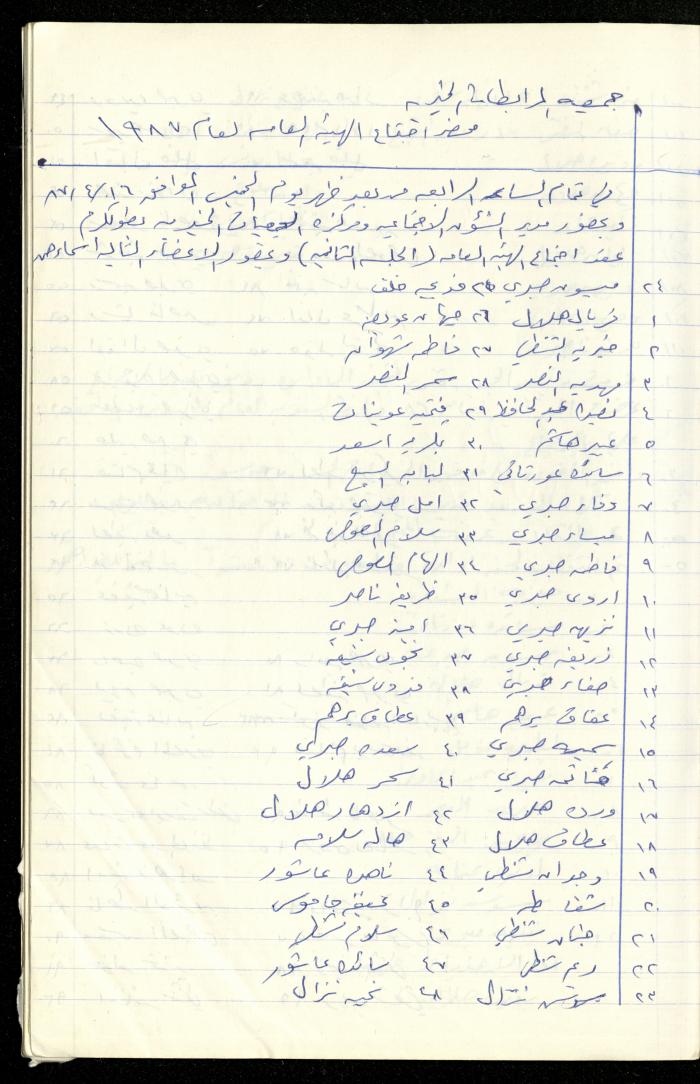 جمعيه المرابطات الخيريه
محضر اجتماع الهيئه العامه لعام ١٩٨٧
في تمام الساعه الرابعه من بعد ظهر يوم الخميس الموافق ٨٧/٤/١٦
وبحضور مدير الشؤون الاجتماعيه ومركزه الجمعيات الخيريه بطولكرم
عقد اجتماع الهيئه العامه (الجلسه الثانيه) وبحضور الاعضاء التاليه اسماءهن
٢٤ ميسون صبري ٢٥ فتحيه خلف
١ فريال هلال ٢٦ جيهان عوده
٢ خيريه الشنطي ٢٧ فاطمه شهوان
٣ مهديه النصر ٢٨ سمر النصر
٤ نصره عبد الحافظ ٢٩ فتحيه عوينات
٥ عبير هاشم ٣٠ اسعد
٦ سائده عورتاني ٣١ لبابه السبع
٧ وفاء صبري ٣٢ امل صبري
٨ ميساء صبري ٣٣ سلام
٩ فاطمه صبري ٣٤ الهام
١٠ اروى صبري ٣٥ ظريفه ناصر
١١ نزيهه صبري ٣٦ امنه صبري
١٢ ظريفه صبري ٣٧ نجوى
١٣ صفاء صبري ٣٨ فدوى
١٤ عفاف برهم ٣٩ عطاف برهم
١٥ سميه صبري ٤٠ سعده صبري
١٦ صبري ٤١ سحر هلال
١٧ ورده هلال ٤٢ ازدهار هلال
١٨ عطاف هلال ٤٣ هاله سلامه
١٩ وجدان شنطي ٤٤ ناهده عاشور
٢٠ شفا طه ٤٥ عفيفه جاموس
٢١ حنان شنطي ٤٦ سلام
٢٢ ريم شنطي ٤٧ سائده عاشور
٢٣ سوسن نزال ٤٨ نجيه نزال